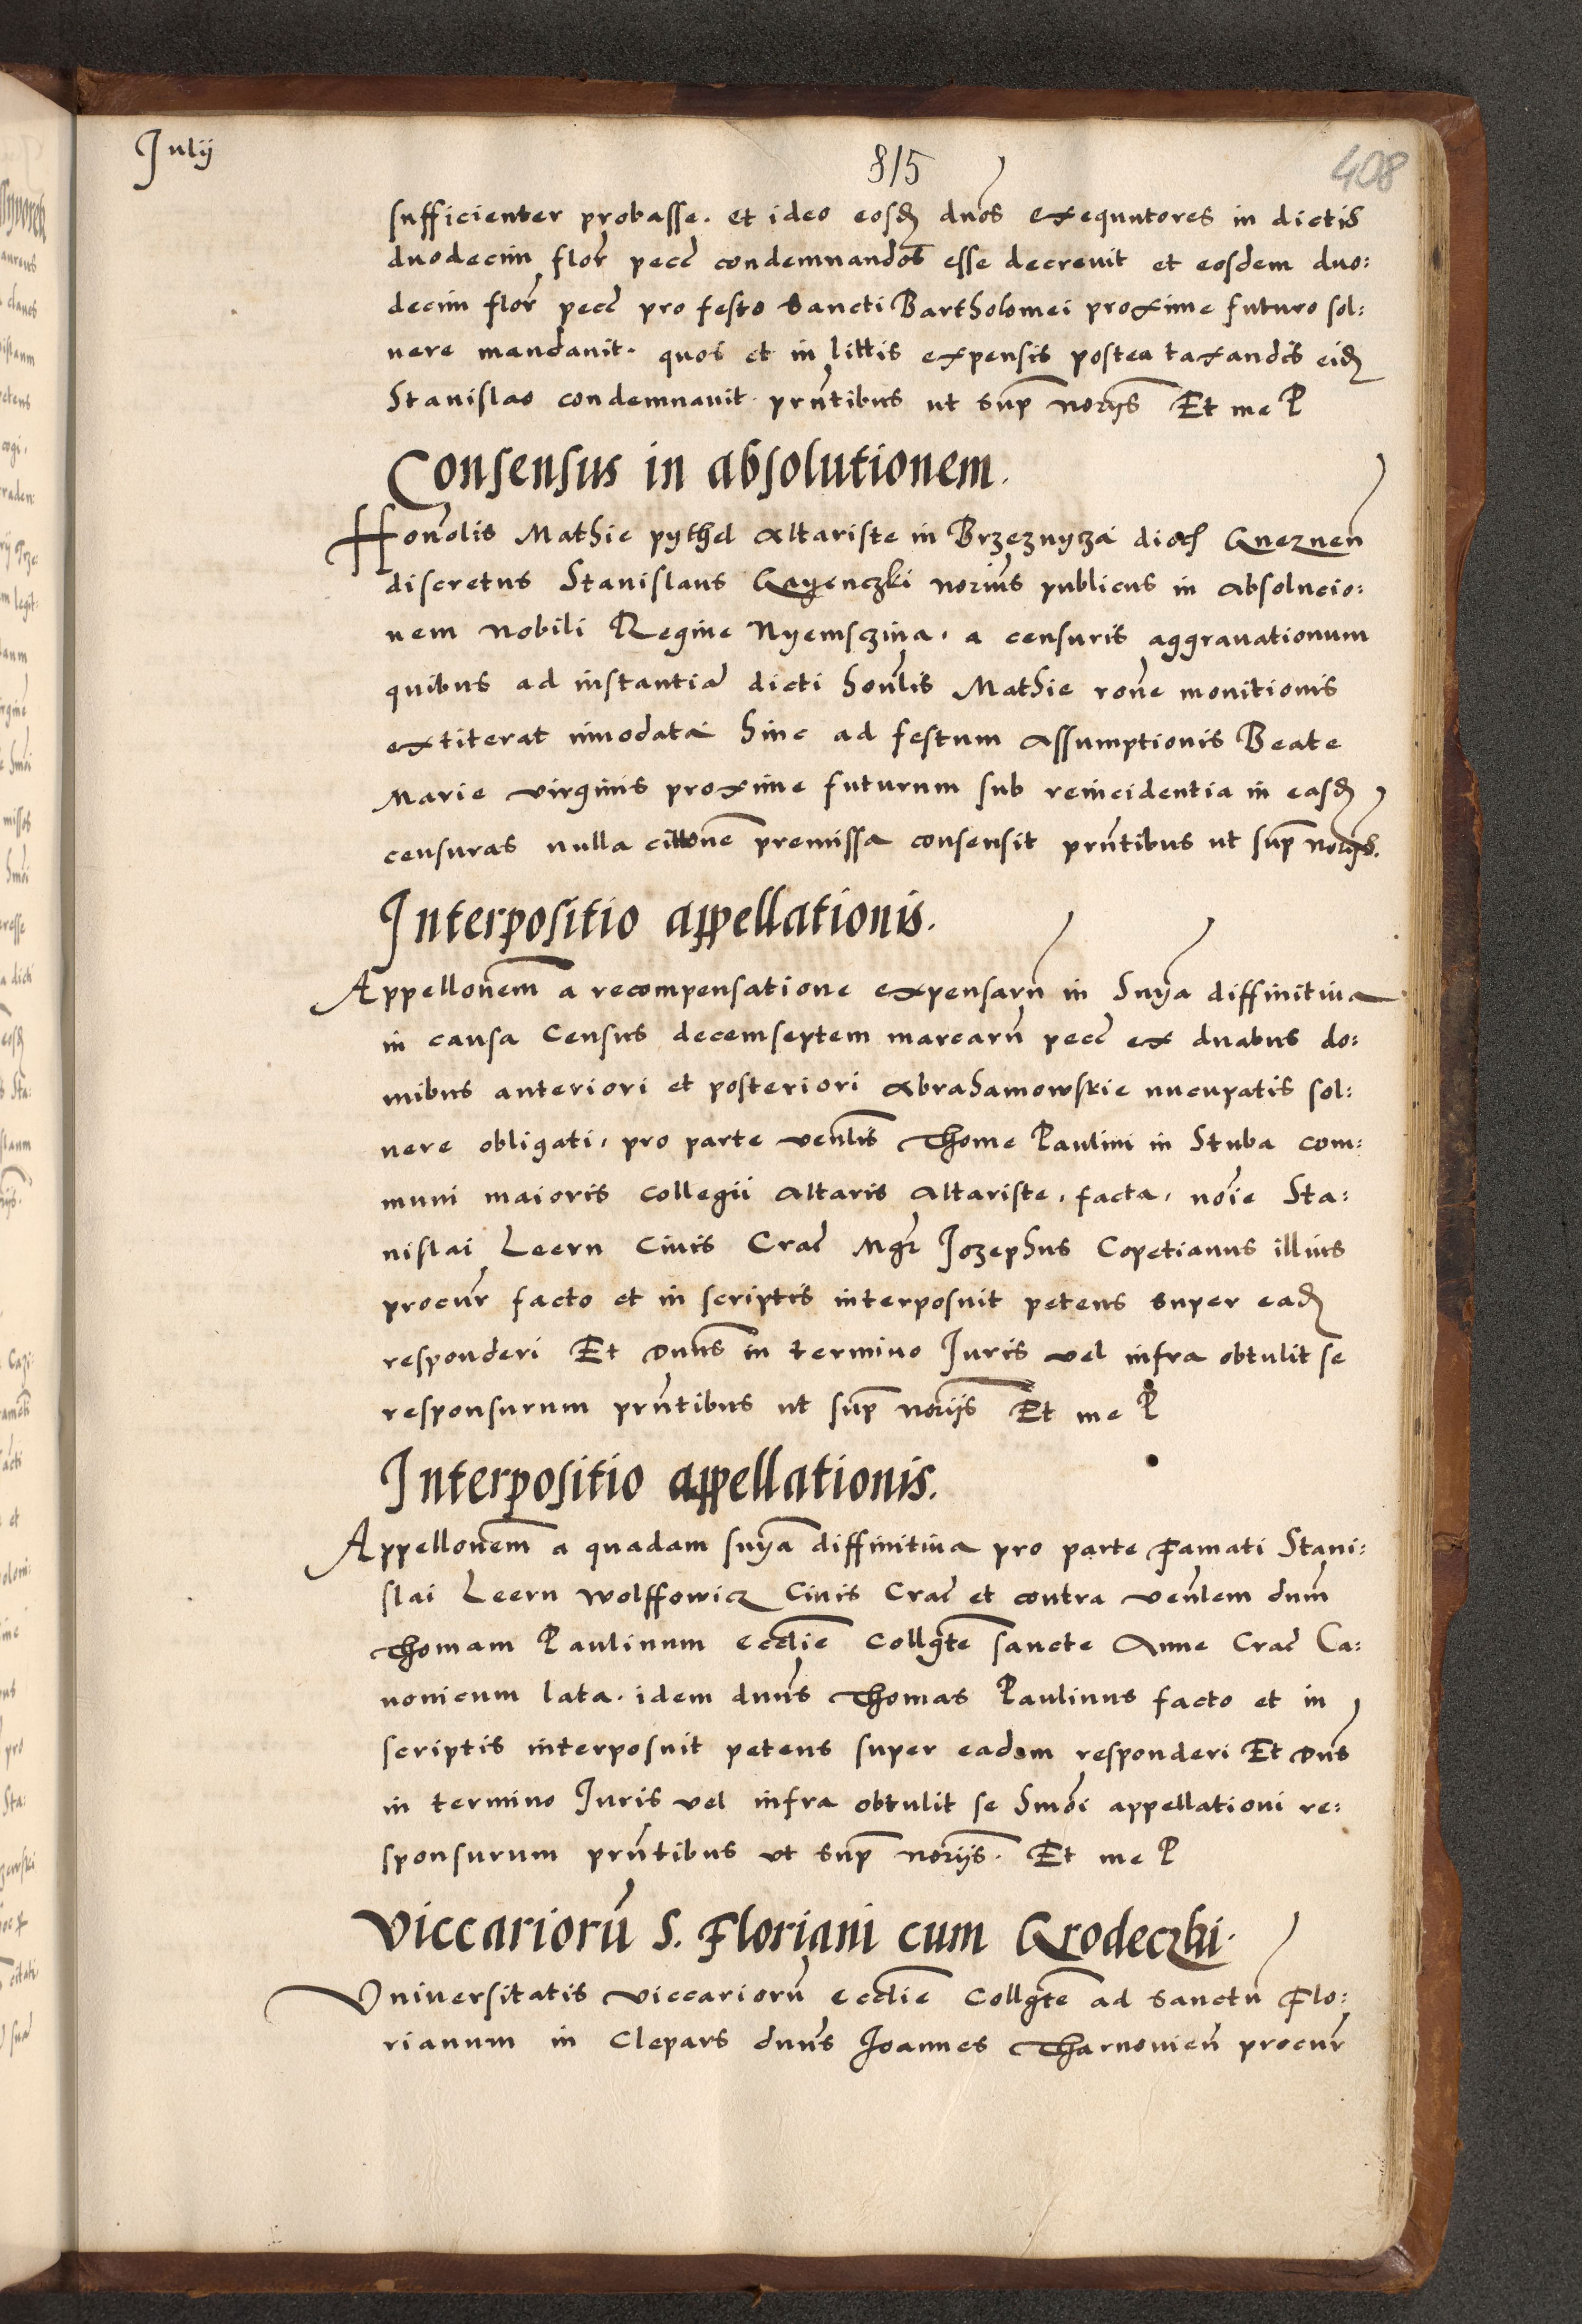 Julij
815
408
sufficienter probasse. et ideo eosd dnos exequutores in dictis
duodecim flor pecc condemnandos esse decrevit et eosdem duo:
decim flor pecc pro festo Sancti Bartholomei proxime futuro sol:
uere mandauit. quos et in littis expensis postea taxandis eid
Stanislao condemnauit prntibus ut sup noriis Et me P
Consensus in absolutionem.
Honolis Mathie pythel Altariste in Brzeznycza dioc Gneznen
discretus Stanislaus Gayenczki norius publicus in absolucio:
nem Nobili Regine Nyemsczina. a censuris aggrauationum
quibus ad instantia dicti honlis Mathie rone monitionis
extiterat innodata hinc ad festum Assumptionis Beate
Marie virginis proxime futurum sub reincidentia in easd
censuras nulla cittone premissa consensit prntibus ut sup noriis.
Interpositio appellationis.
Appellonem a recompensatione expensaru in Snya diffinitiua
in causa Census decemseptem marcaru pecc ex duabus do:
mibus anteriori et posteriori Abrahamowskie nucupatis sol:
uere obligati, pro parte venlis Thome Paulini in Stuba com:
muni maioris Collegii Altaris Altariste, facta, noie Sta:
nislai Leern Ciuis Crac Mgr Jozephus Copetianus illius
procur facto et in scriptis interposuit petens super ead
responderi Et Dnns in termino Juris vel infra obtulit se
responsurum prntibus ut sup noriis Et me P
Interpositio appellationis.
Appellonem a quadam snya diffinitiua pro parte Famati Stani:
slai Leern Wolffowicz Ciuis Crac et contra venlem dnm
Thomam Paulinum Ecclie Collgte Sancte Anne Crac Ca:
nonicum lata. idem dnns Thomas Paulinus facto et in
scriptis interposuit petens super eadem responderi Et Dns
in termino Juris vel infra obtulit se hmoi appellationi re:
sponsurum prntibus ut sup noriis. Et me P
Viccarioru S. Floriani cum Grodeczki.
Vniuersitatis viccarioru Ecclie Collgte ad Sanctu Flo:
rianum in Clepars dnns Joannes Tharnouien procur